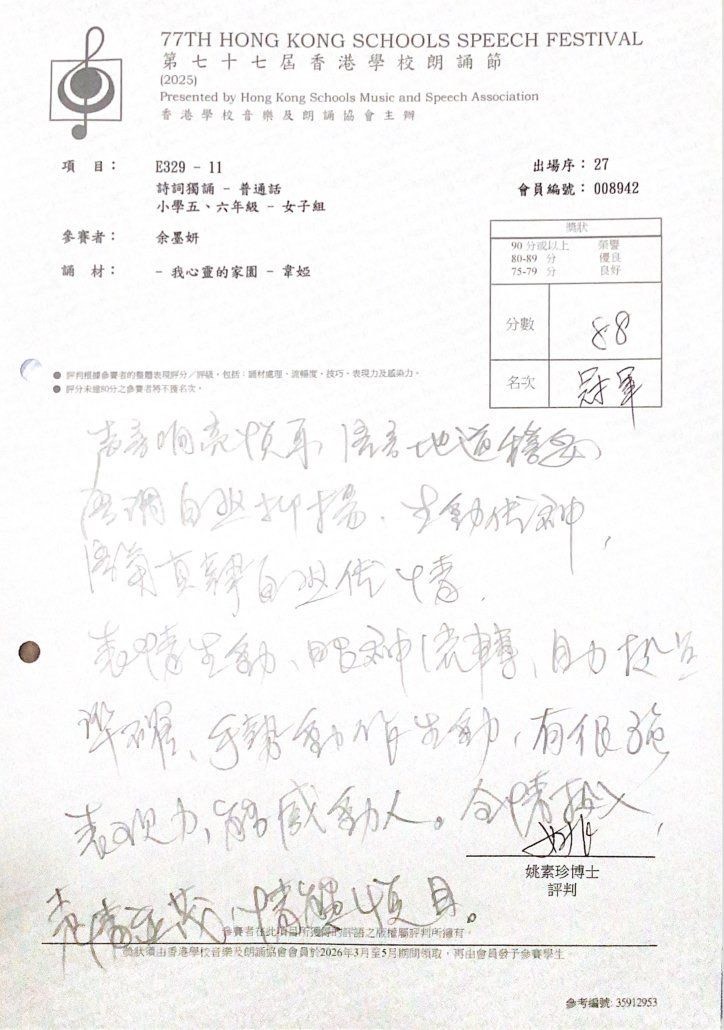 77TH HONG KONG SCHOOLS SPEECH FESTIVAL
第七十七屆香港學校朗誦節
(2025)
Presented by Hong Kong Schools Music and Speech Association
香港學校音樂及朗誦協會主辦
項 目： E329 - 11
詩詞獨誦 - 普通話
小學五、六年級 - 女子組
出場序： 27
會員編號： 008942
參賽者： 余墨妍
誦 材： - 我心靈的家園 - 韋婭
獎狀
90 分或以上 榮譽
80-89 分 優良
75-79 分 良好
分數 88
名次 冠軍
● 評判根據參賽者的整體表現評分／評級，包括：誦材處理、流暢度、技巧、表現力及感染力。
● 評分未達80分之參賽者將不獲名次。
聲音响亮悅耳，語音地道穩妥
語調自然抑揚、生動傳神，
語氣真摯自然傳情。
表情生動、眼神流轉、自力投豆
準確、手勢動作生動，有很強
表現力，能感動人。全情投入，
姚素珍博士
評判
聲情並茂
參賽者在此項目所獲得的評語之版權屬評判所擁有。
獎狀須由香港學校音樂及朗誦協會會員於2026年3月至5月期間領取，再由會員發予參賽學生。
參考編號: 35912953